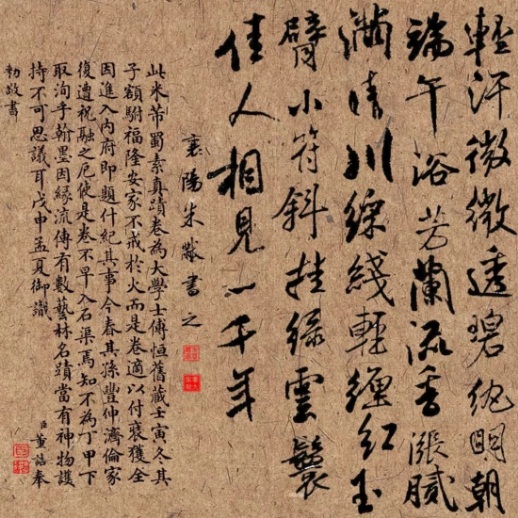 輕汗微微透碧紈明朝
端午浴芳蘭流香漲膩
滿晴川綵綫輕纏紅玉
臂小符斜挂綠雲鬟
佳人相見一千年
襄陽米黻書之
此米芾蜀素真蹟卷為大學士傅恒舊藏壬寅冬其
子額駙福隆安家不戒於火而是卷適以付裝獲全
因進入內府即題什紀其事今春其孫豐伸濟倫家
復遭祝融之厄使是卷不早入石渠焉知不為丁甲下
取洵乎翰墨因緣流傳有數藝林名蹟當有神物護
持不可思議耳戊申孟夏御識
臣董誥奉
勅敬書